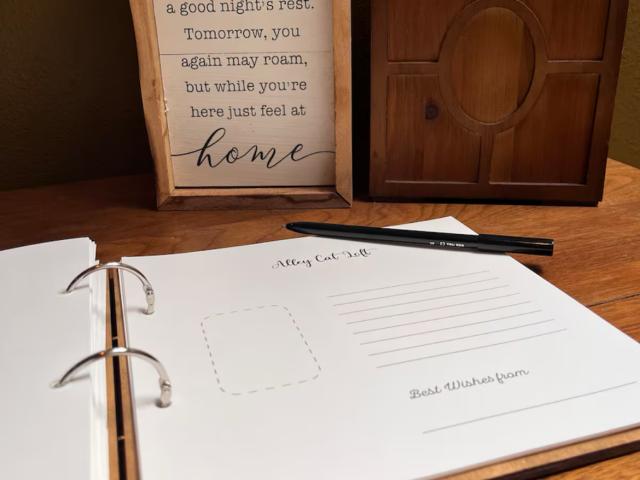 a good night's rest.
Tomorrow, you
again may roam,
but while you're
here just feel at
home
Alley Cat Loft
Best Wishes from